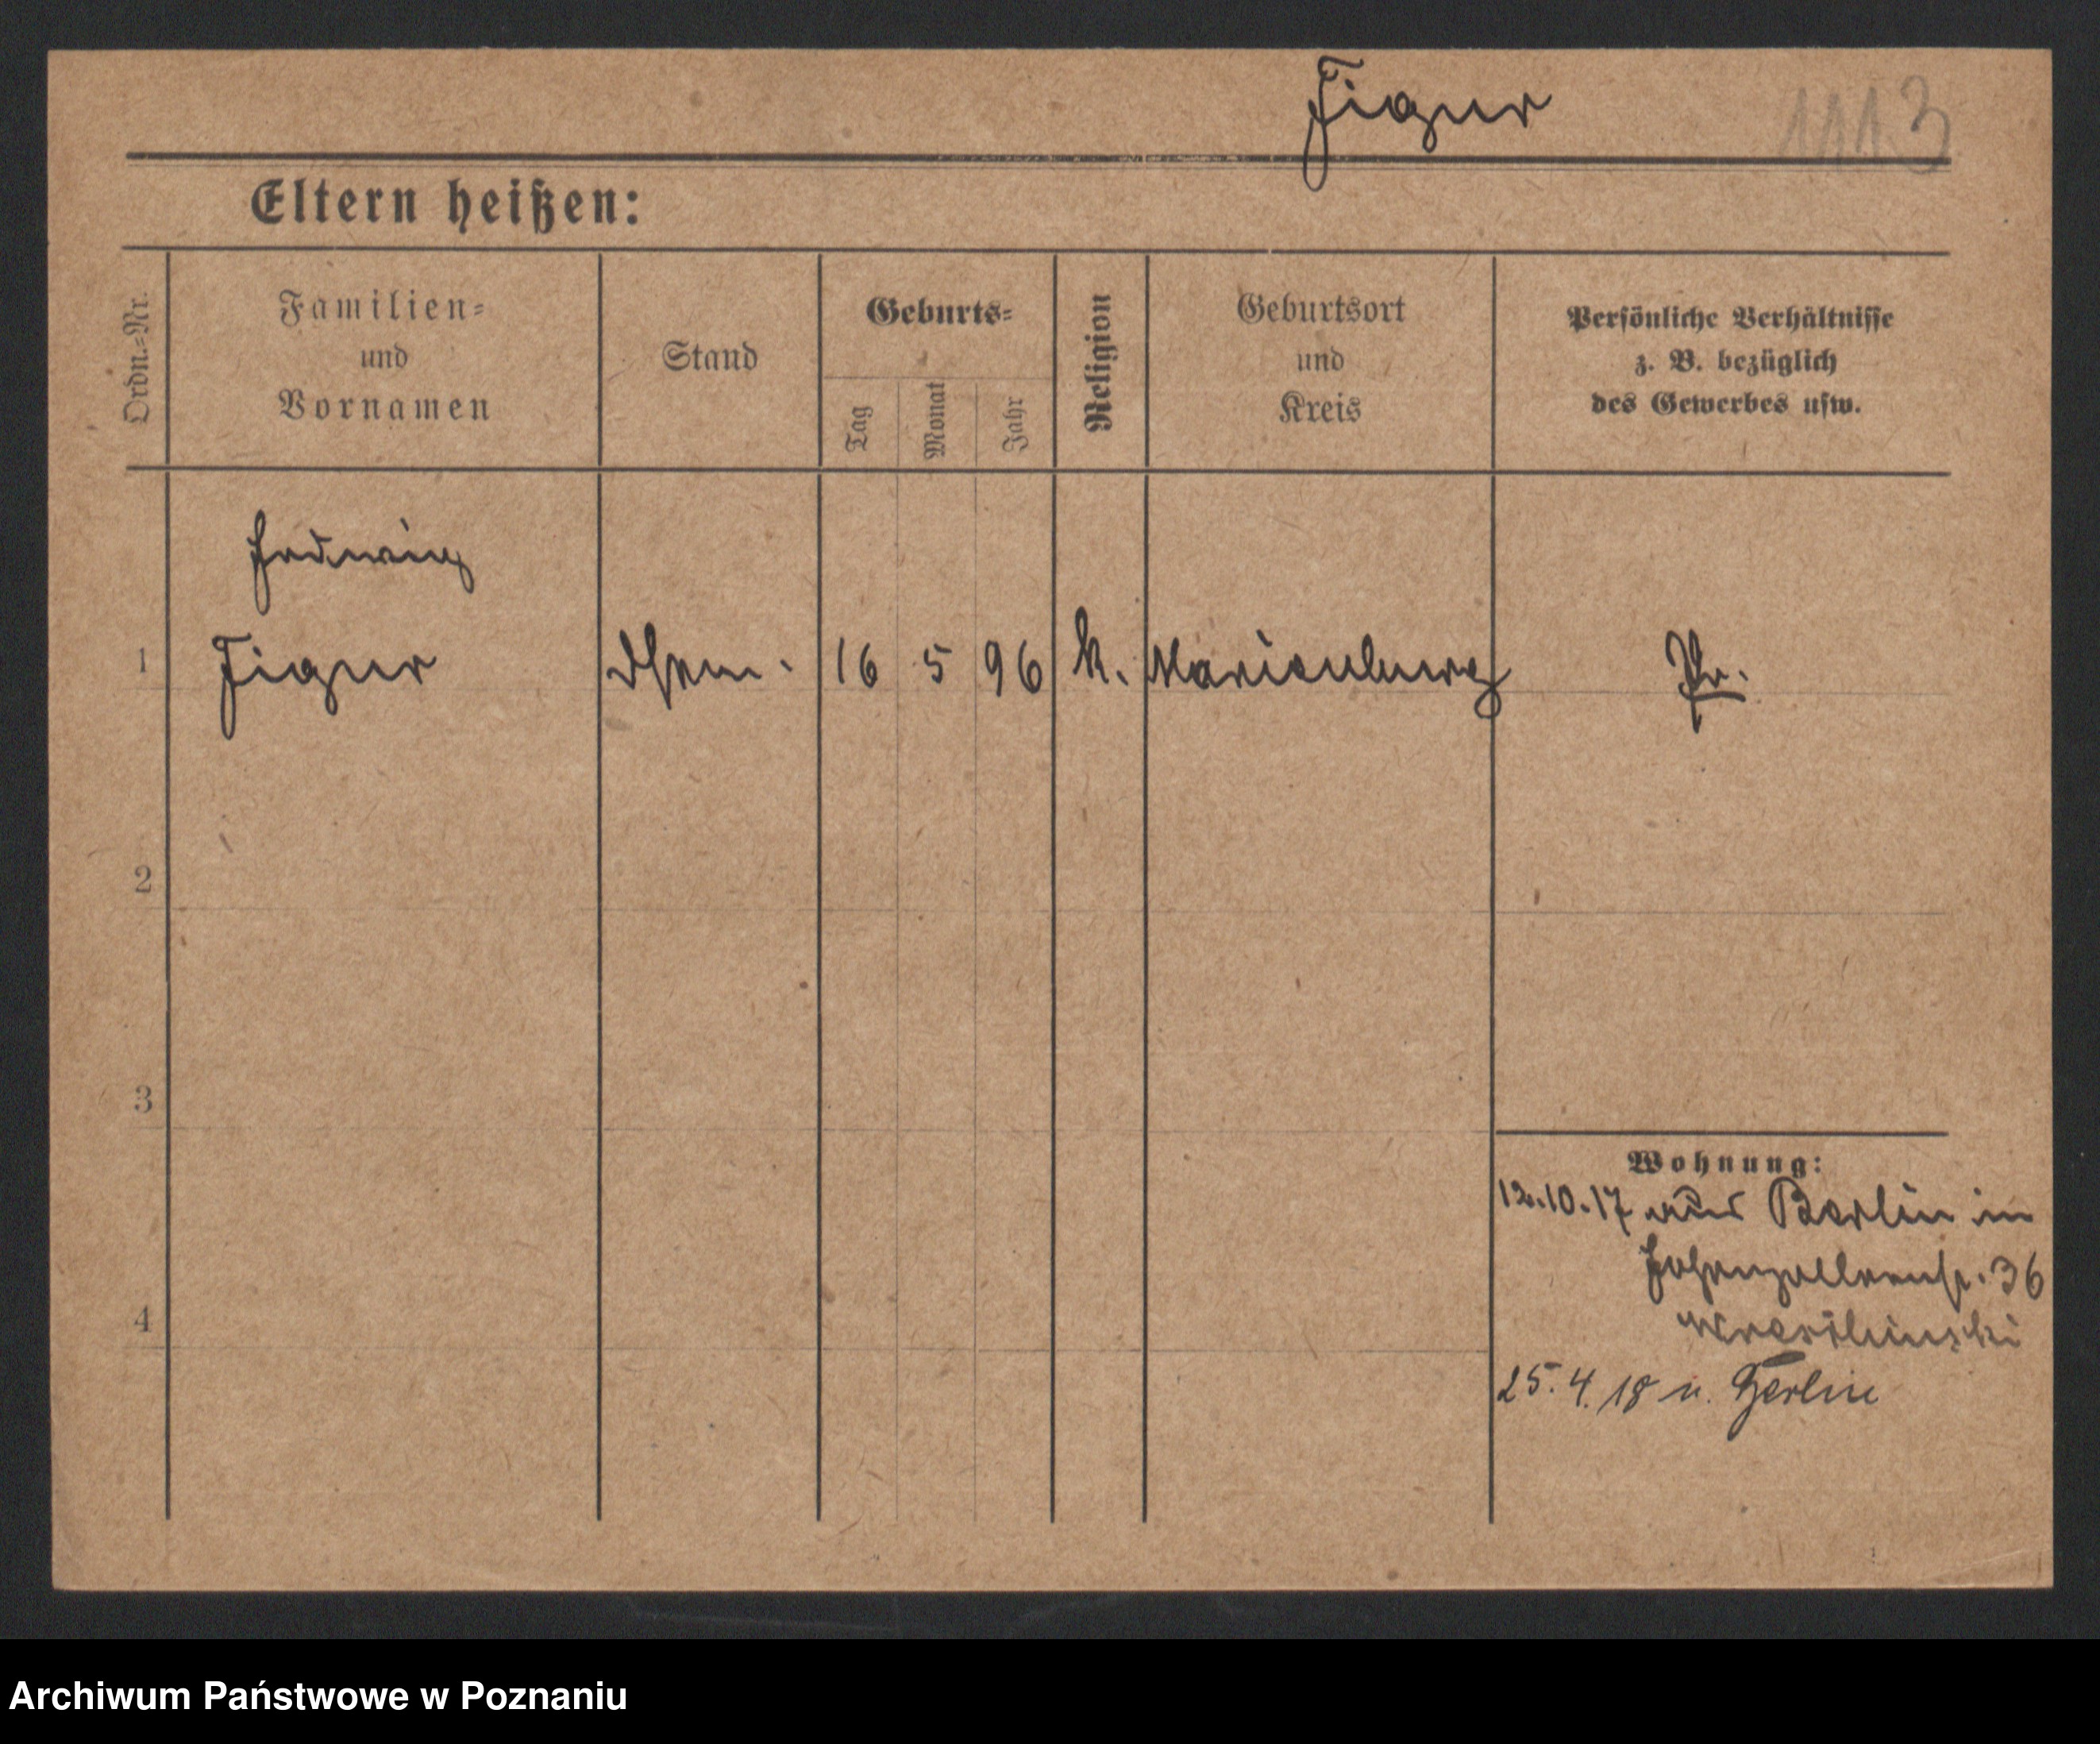 Figur
1113
Eltern heißen:
Ordn.-Nr.
Familien-
und
Vornamen
Stand
Geburts-
Tag
Monat
Jahr
Religion
Geburtsort
und
Kreis
Persönliche Verhältnisse
z. B. bezüglich
des Gewerbes usw.
Hedwig
1 Figur 16 5 96 k. Marienburg Pr.
2
3
4
Wohnung:
12.10.17 aus Berlin in
Hohenzollernstr. 36
25.4.18 n. Berlin
Archiwum Państwowe w Poznaniu